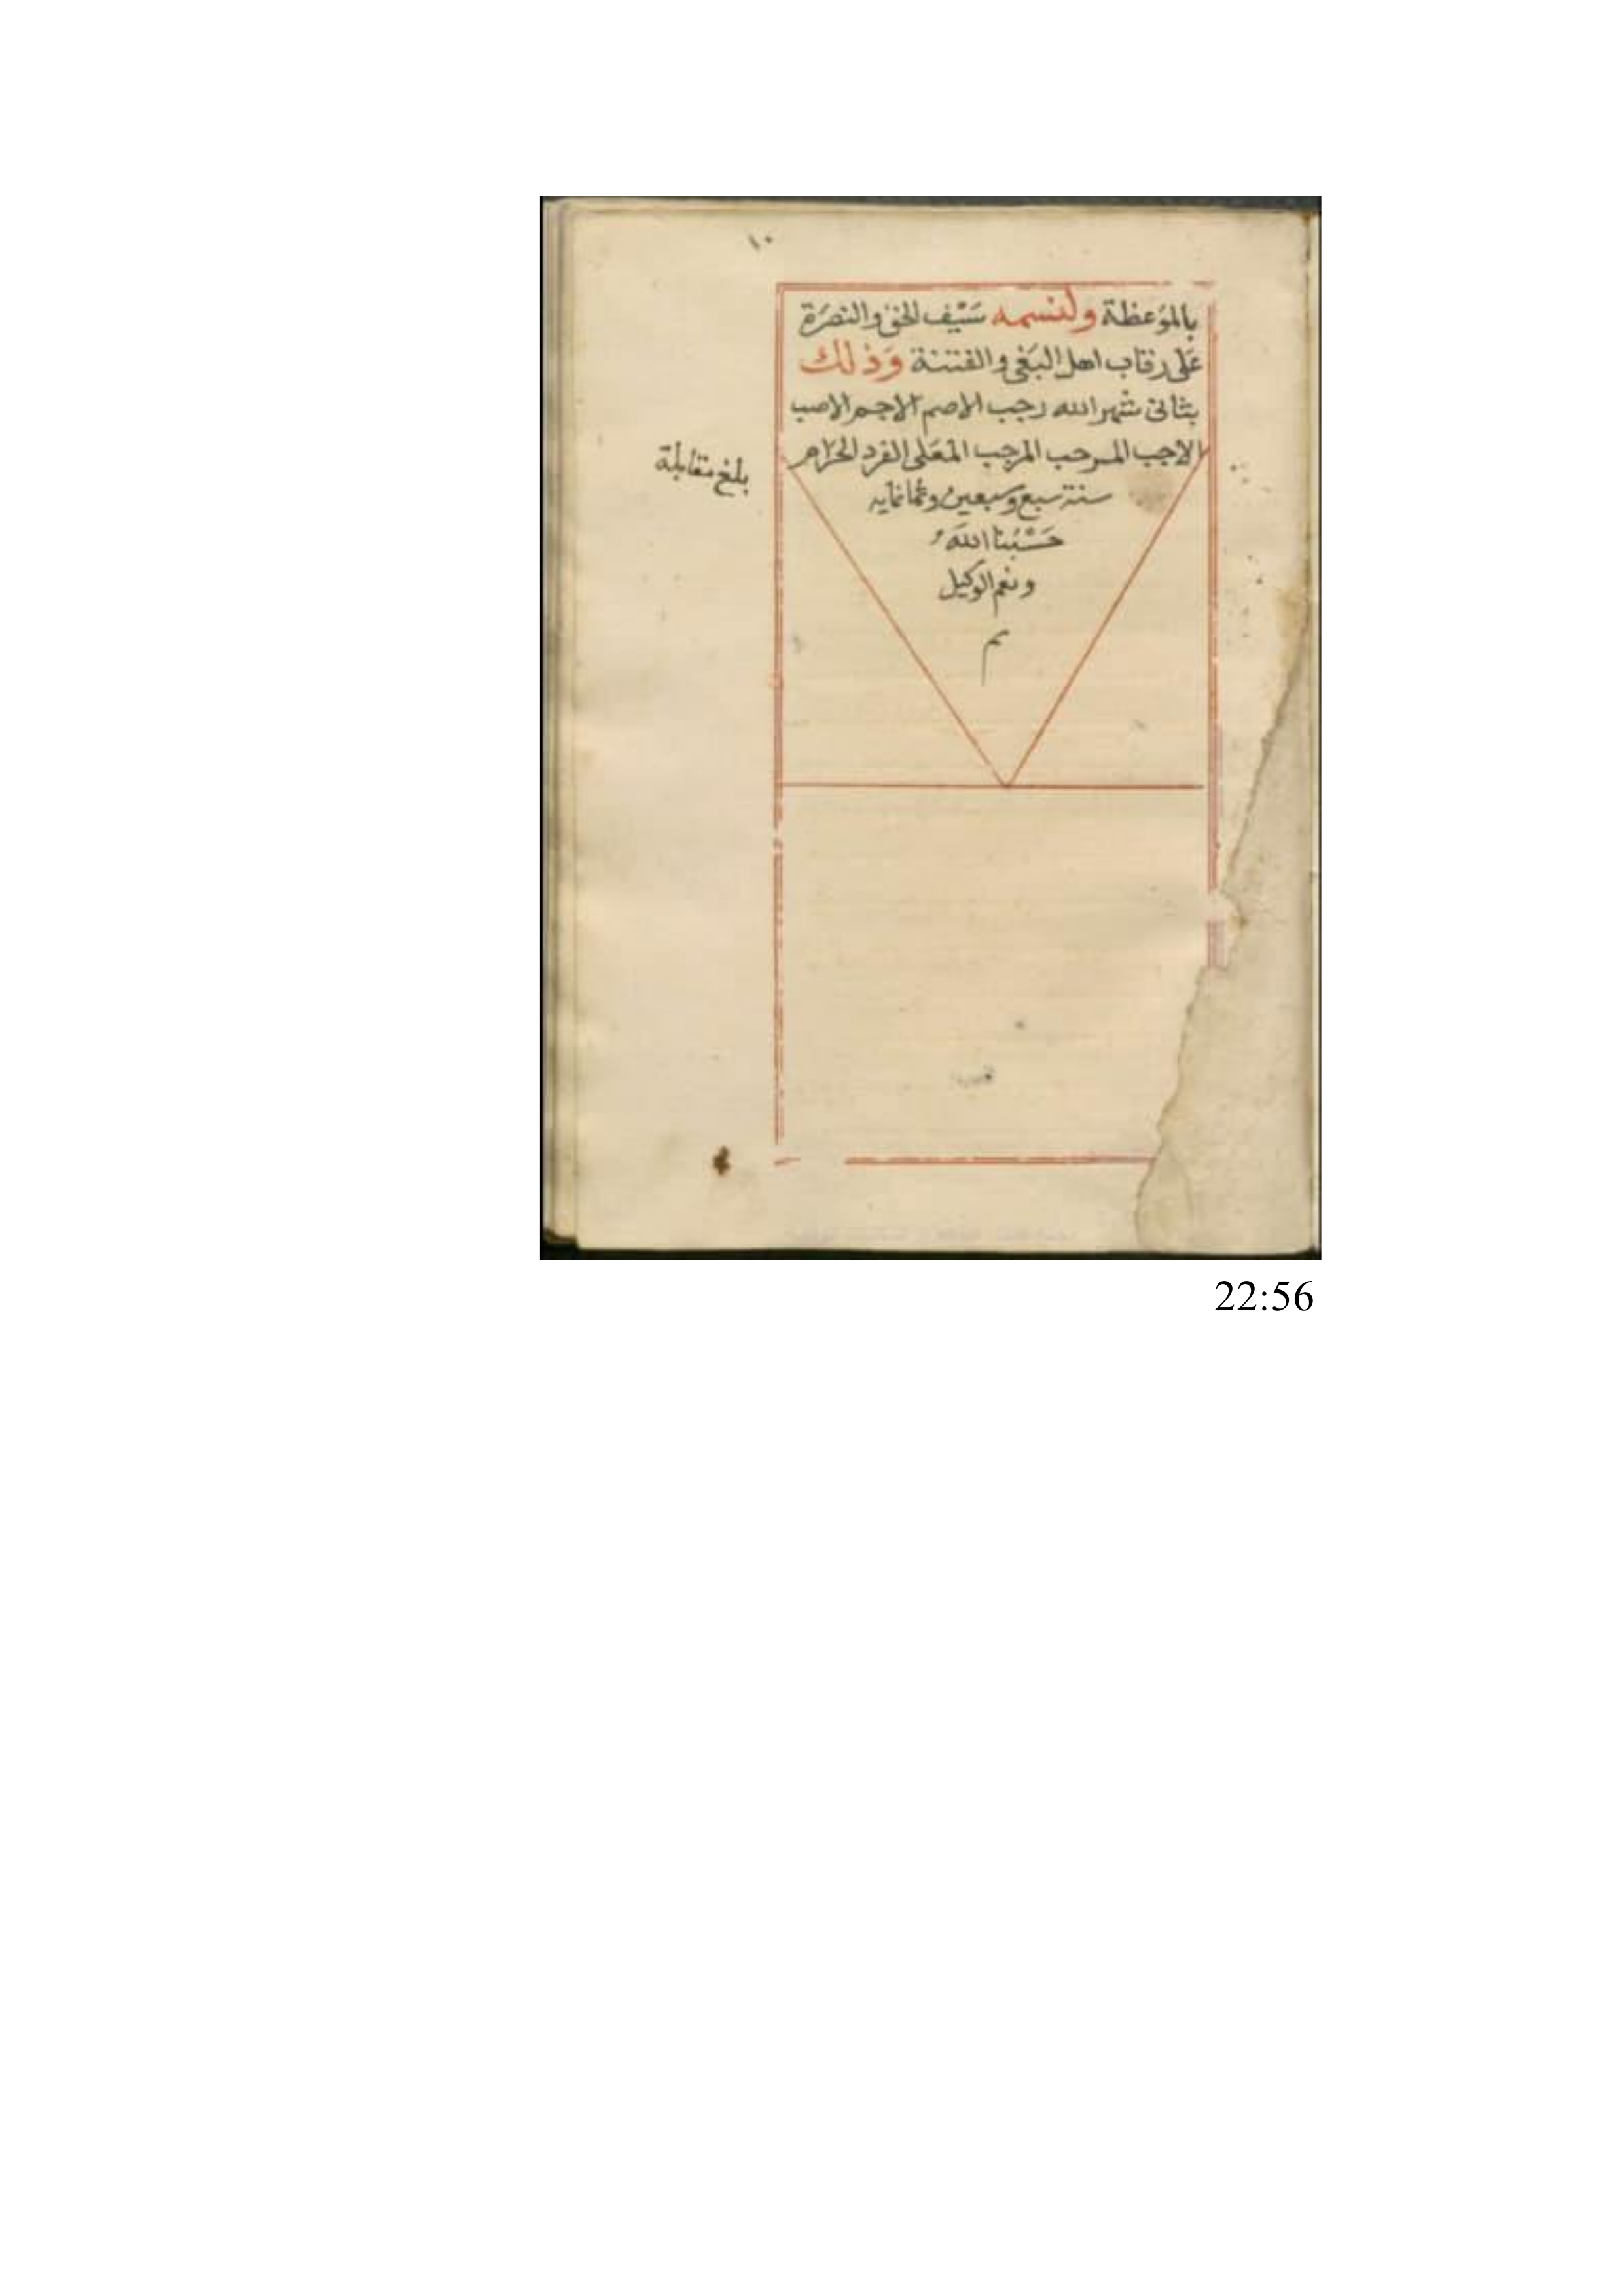 ١٠
بالموَعظة ولنسمه سَيْف الحق والنصرَة
عَلى رقاب اهل البَغى والفتنة وَذلك
بثانى شهر الله رجب الاصم الاجم الاصب
الاجب المرحب المرجب المعَلى الفرد الحرَام
بلغ مقابلة
سنة سبع وسبعين وثمانمايه
حَسْبُنا اللهَُ
ونعم الوكيل
م
22:56